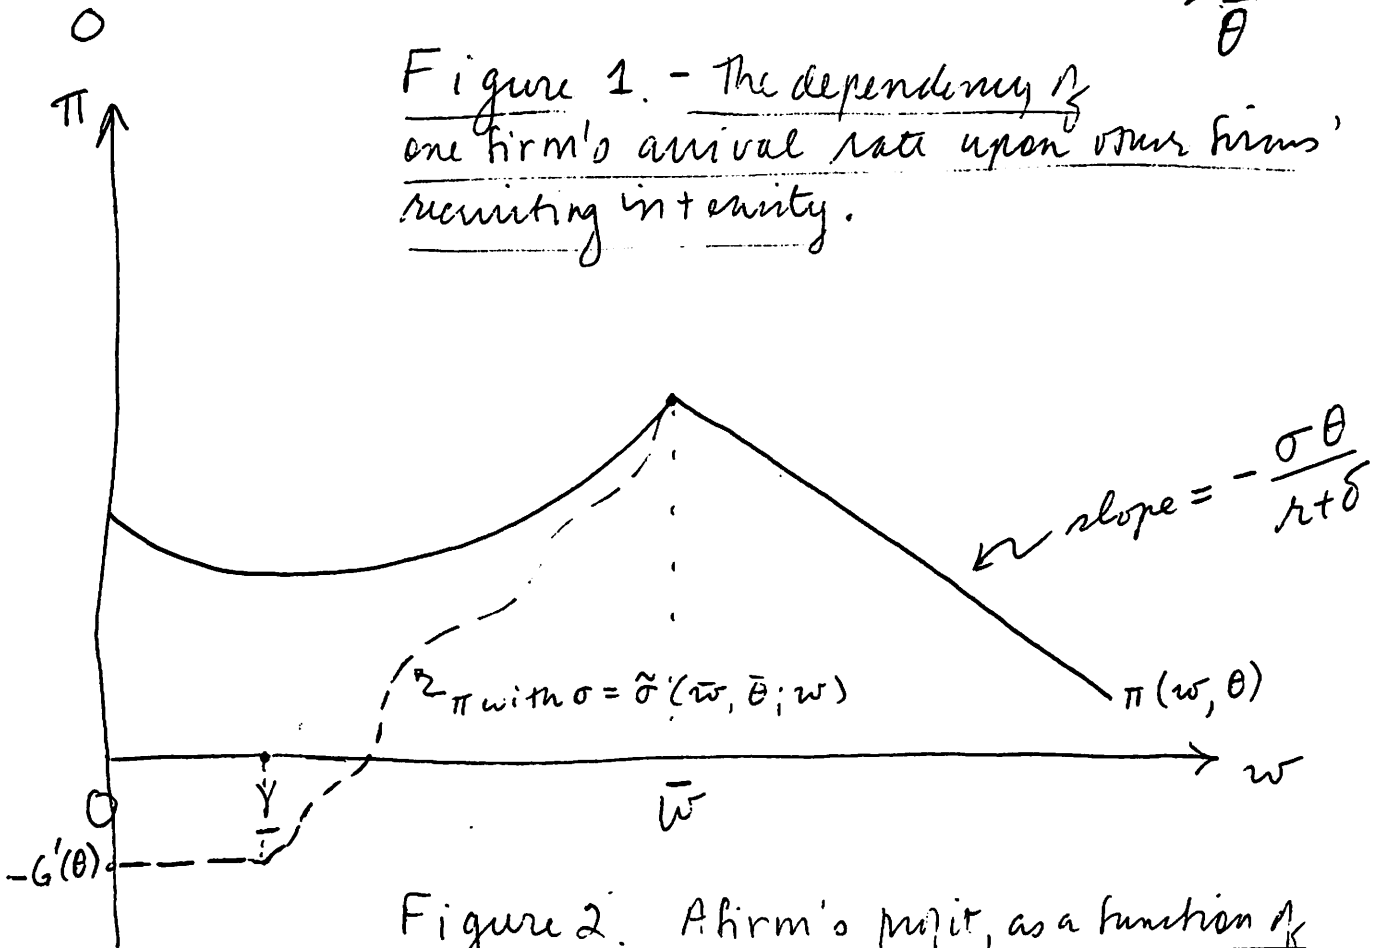 0
θ̄
π
Figure 1. - The dependency of
one firm's arrival rate upon other firms'
recruiting intensity.
slope = - σθ / r+δ
π with σ = σ̃ (w̄, θ̄; w)
π(w, θ)
w
w̄
γ
0
-G'(θ)
Figure 2. A firm's profit, as a function of